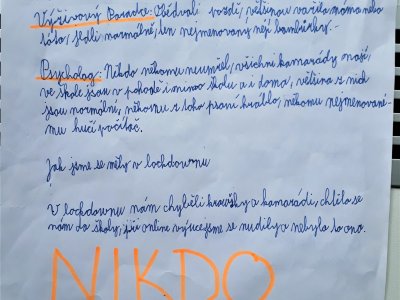 Výživový Poradce: Obědvali vozdí, většinou vařila máma nebo
táta, jedli normálně, jen nejmenovaný nejí bambitky.
Psycholog: Nikdo někomu neumřel, všichni kamarády mají,
ve škole jsou v pohodě i mimo školu a i doma, většina z nich
jsou normální, někomu z toho psaní hráblo, někomu nejmenované-
mu hučí počítač.
Jak jsme se měly v lockdownu
V lockdownu nám chyběli kroužky a kamarádi, chtělo se
nám do školy, při online výuce jsme se nudily a nebylo to ono.
NIKDO